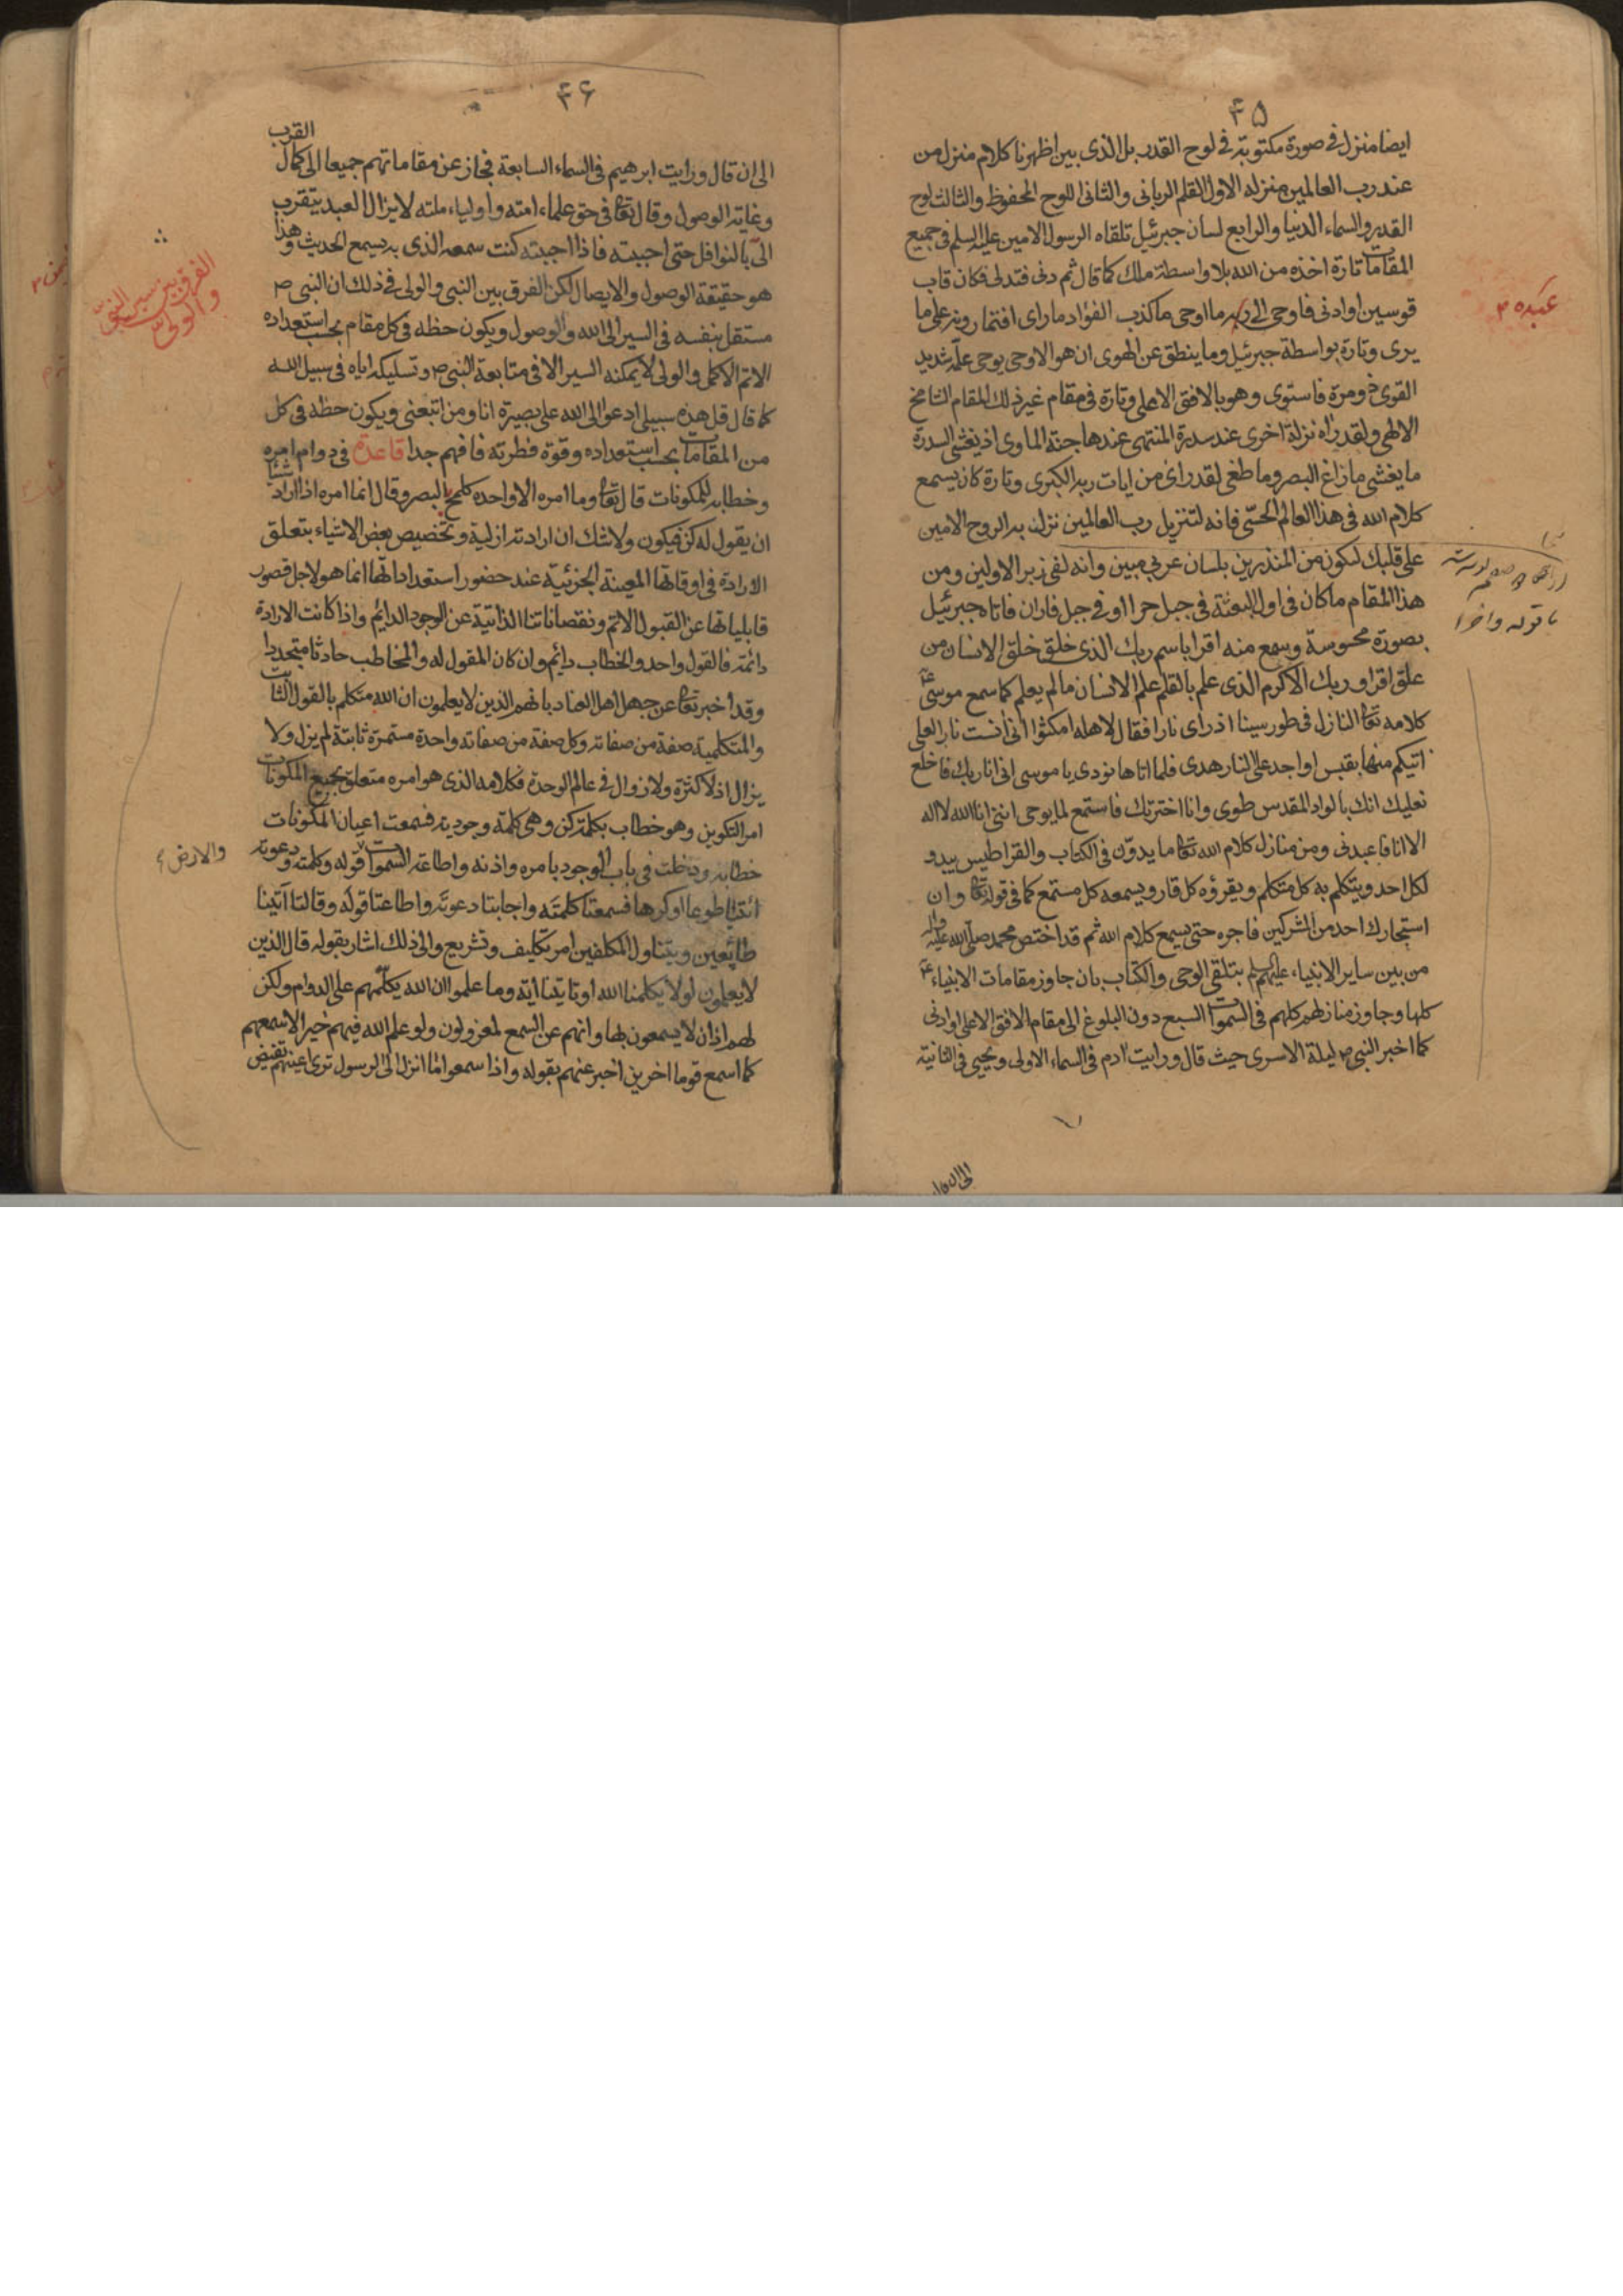 ۴۵
ايضا منزل فى صورة مكتوبة فى لوح القدر بل الذى بين اظهرنا كلام منزل من
عند رب العالمين منزله الاول القلم الربانى والثانى اللوح المحفوظ والثالث لوح
القدر والسماء الدنيا والرابع لسان جبرئيل تلقاه الرسول الامين عليه السلم فى جميع
المقامات تارة اخذه من الله بلا واسطة ملك كما قال ثم دنى فتدلى فكان قاب
قوسين او ادنى فاوحى الى ما اوحى ما كذب الفؤاد ما راى افتمارونه على ما
عبده
يرى وتارة بواسطة جبرئيل وما ينطق عن الهوى ان هو الا وحى يوحى علمه شديد
القوى ذو مرة فاستوى وهو بالافق الاعلى وتارة فى مقام غير ذلك المقام الشامخ
الالهى ولقد راه نزلة اخرى عند سدرة المنتهى عندها جنة الماوى اذ يغشى السدرة
ما يغشى ما زاغ البصر وما طغى لقد راى من ايات ربه الكبرى وتارة كان يسمع
كلام الله فى هذا العالم الحسّى فانه لتنزيل رب العالمين نزل به الروح الامين
على قلبك لتكون من المنذرين بلسان عربى مبين وانه لفى زبر الاولين ومن
هذا المقام ما كان فى اول البعثة فى جبل حرا او فى جبل فاران فاتاه جبرئيل
بصورة محسوسة وسمع منه اقرا باسم ربك الذى خلق خلق الانسان من
علق اقرا وربك الاكرم الذى علم بالقلم علم الانسان ما لم يعلم كما سمع موسى ع
كلامه تعا النازل فى طور سينا اذ راى نارا فقال لاهله امكثوا انى آنست نارا لعلى
اتيكم منها بقبس او اجد على النار هدى فلما اتاها نودى يا موسى انى انا ربك فاخلع
نعليك انك بالواد المقدس طوى وانا اخترتك فاستمع لما يوحى اننى انا الله لا اله
الا انا فاعبدنى ومن منازل كلام الله تعا ما يدوّن فى الكتاب والقراطيس يبدو
لكل احد ويتكلم به كل متكلم ويقرؤه كل قار ويسمعه كل مستمع كما فى قوله تعا وان
استجارك احد من المشركين فاجره حتى يسمع كلام الله ثم قد اختص محمد صلى الله عليه واله
من بين ساير الانبياء عليهم السلم بتلقى الوحى والكتاب بان جاوز مقامات الانبياء ع
كلها وجاوز منازلهم كلهم فى السموات السبع دون البلوغ الى مقام الافق الاعلى او ادنى
كما اخبر النبى ص ليلة الاسرى حيث قال ورايت ادم فى السماء الاولى ويحيى فى الثانية
الى ان قال
۴۶
الى ان قال ورايت ابرهيم فى السماء السابعة فجاز عن مقاماتهم جميعا الى كمال القرب
وغاية الوصول وقال تعا فى حق علماء امته واولياء ملته لا يزال العبد يتقرب
الىّ بالنوافل حتى احببته فاذا احببته كنت سمعه الذى به يسمع الحديث وهذا
هو حقيقة الوصول والايصال لكن الفرق بين النبى والولى فى ذلك ان النبى ص
الفرق بين سير النبى
والولى
مستقل بنفسه فى السير الى الله والوصول ويكون حظه فى كل مقام بحسب استعداده
الاتم الاكمل والولى لا يمكنه السير الا فى متابعة النبى ص وتسليكه اياه فى سبيل الله
كما قال قل هذه سبيلى ادعوا الى الله على بصيرة انا ومن اتبعنى ويكون حظه فى كل
من المقامات بحسب استعداده وقوة فطرته فافهم جدا قاعدة فى دوام امره
وخطابه للمكونات قال تعا وما امره الا واحده كلمح بالبصر وقال انما امره اذا اراد شيئا
ان يقول له كن فيكون ولا شك ان ارادته ازلية وتخصيص بعض الاشياء بتعلق
الارادة فى اوقاتها المعينة الجزئية عند حضور استعداداتها انما هو لاجل قصور
قابلياتها عن القبول الاتم ونقصاناتنا الذاتية عن الوجود الدائم واذا كانت الارادة
دائمة فالقول واحد والخطاب دايم وان كان المقول له والمخاطب حادثا متجددا
وقد اخبر تعا عن جهل اهل العناد بانهم الذين لا يعلمون ان الله متكلم بالقول الثابت
والمتكلمية صفة من صفاته وكل صفة من صفاته واحدة مستمرة ثابتة لم يزل ولا
يزال اذ لا كثرة ولا زوال فى عالم الوحدة فكلامه الذى هو امره متعلق بجميع المكونات
امر التكوين وهو خطاب بكلمة كن وهى كلمة وجودية فسمعت اعيان المكونات
خطابه ودخلت فى باب الوجود بامره واذنه واطاعة السموات قوله وكلمته ودعوته
والارض
ائتيا طوعا او كرها فسمعتا كلمته واجابتا دعوته واطاعتا قوله وقالتا آتينا
طائعين ويتناول المكلفين امر تكليف وتشريع والى ذلك اشار بقوله قال الذين
لا يعلمون لولا يكلمنا الله او تاتينا اية وما علموا ان الله يكلّمهم على الدوام ولكن
لهم اذان لا يسمعون بها وانهم عن السمع لمعزولون ولو علم الله فيهم خيرا لاسمعهم
كما اسمع قوما اخرين اخبر عنهم بقوله واذا سمعوا ما انزل الى الرسول ترى اعينهم تفيض